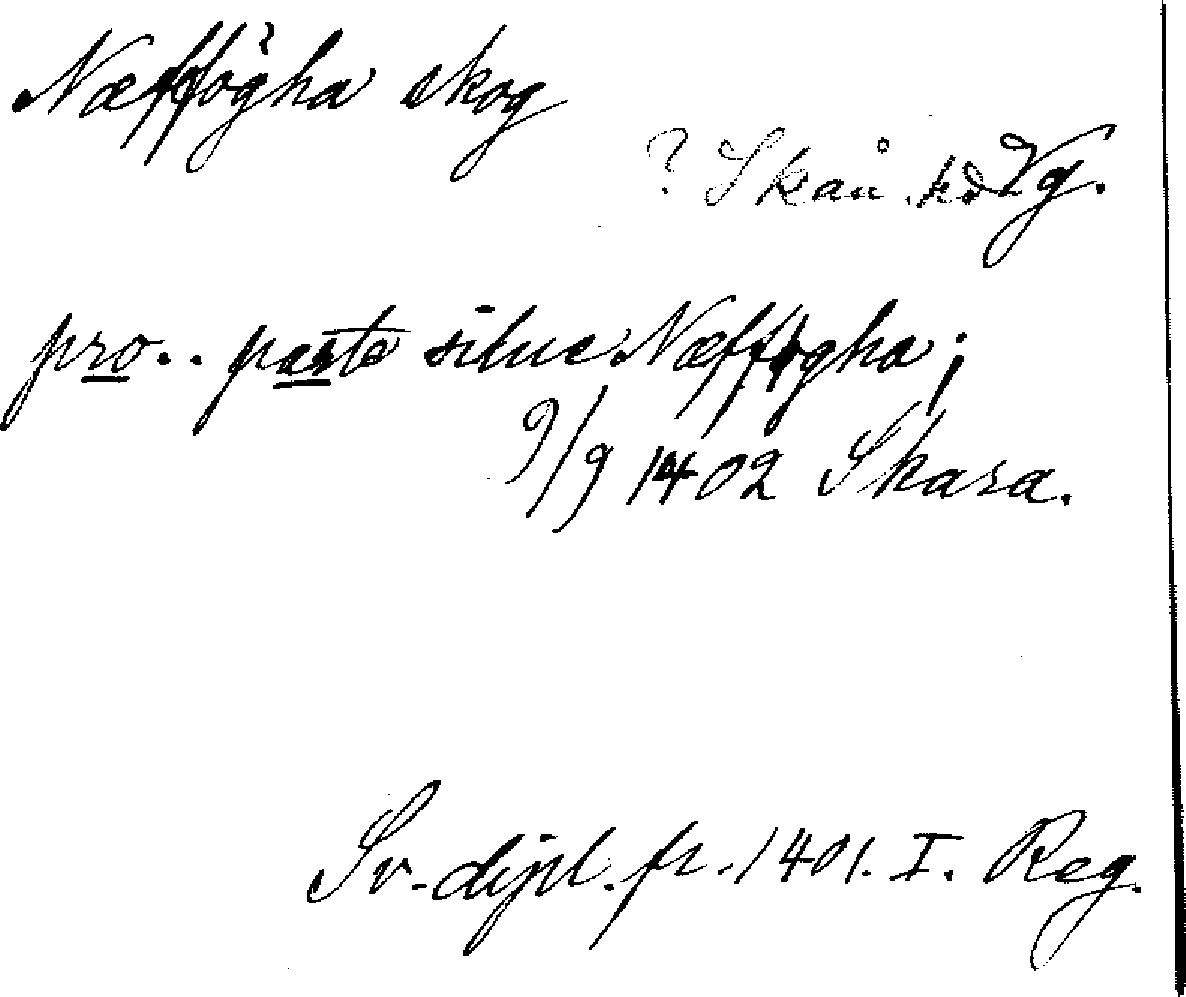 Næffögha skog
? Skån. hd Vg.
pro.. parte silue Næfføgha;
9/9 1402 Skara.
Sv. dipl. fr. 1401. I. Reg.